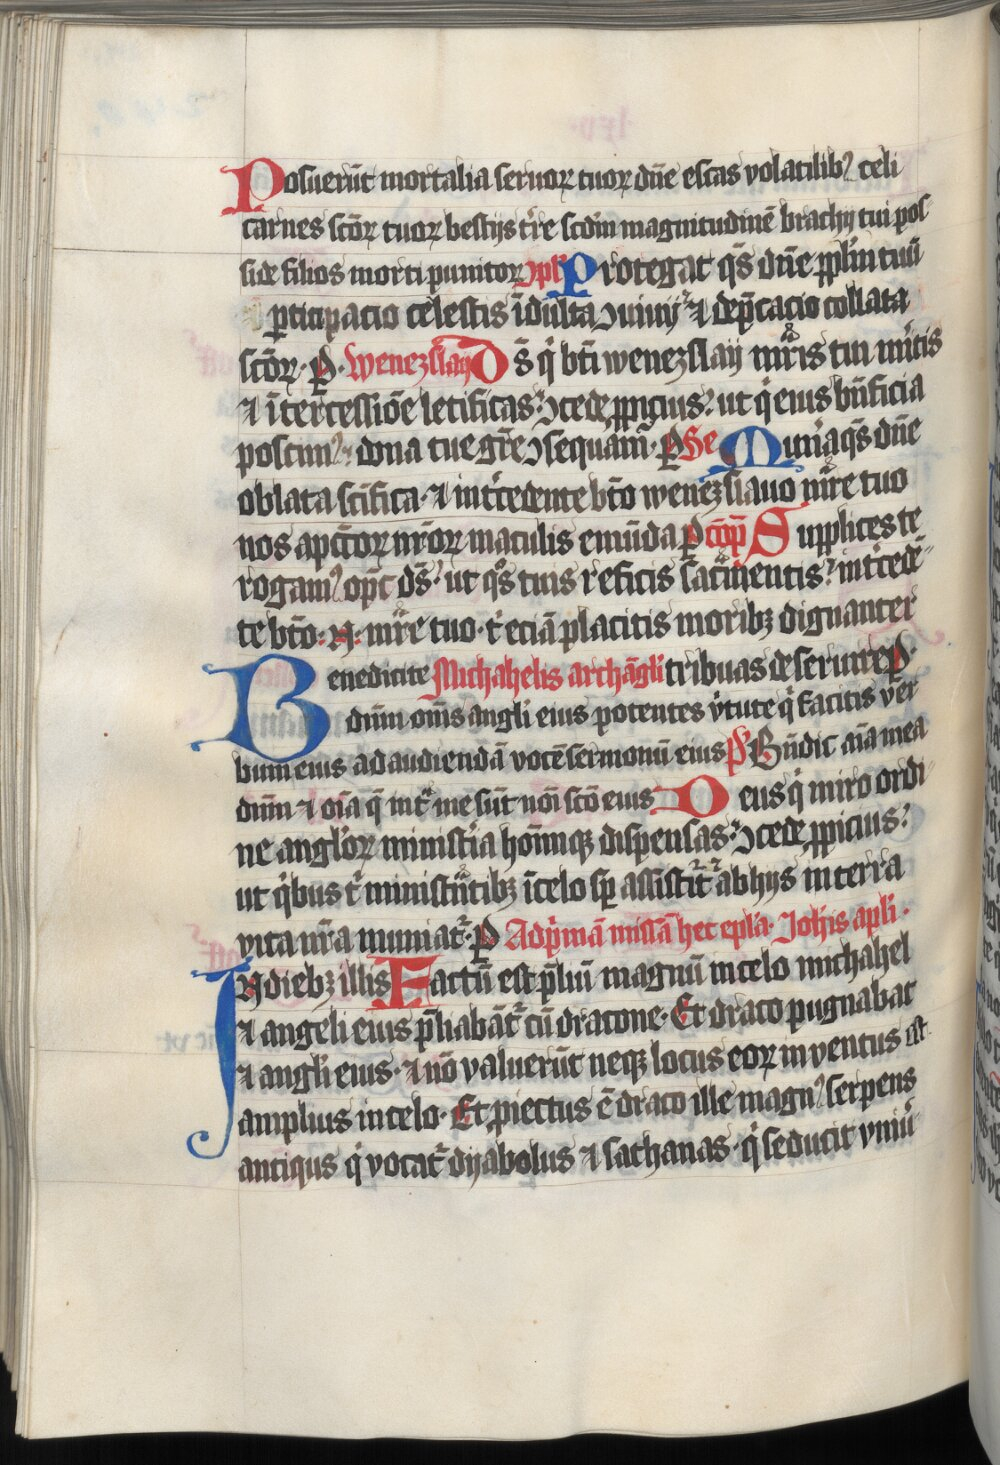 Posuerūt mortalia seruoꝝ tuoꝝ dn̄e escas volatilibꝰ celi
carnes sc̄oꝝ tuoꝝ bestijs tr̄e scd̄m magnitudinē brachij tui pos
side filios morti punitoꝝ ꝯpl̄ Protegat qs̄ dn̄e ppl̄m tuū
ꝑticipacio celestis īdulta ꝯuiuij ⁊ dep̄cacio collata
sc̄oꝝ · P · Wenezslay Ds̄ qͥ bt̄i wenezslay mr̄is tui mͥtis
⁊ īt͛cessiōe letificas ꝯcede ꝓpiciꝰ ut qͥ eius bn̄ficia
poscimꝰ dona tue gr̄e ꝯsequam̄ · P Se Mun͛a qs̄ dn̄e
oblata sc̄ifica · ⁊ int͛cedente bt̄o wenezslauo mr̄e tuo
nos a pcc̄oꝝ nr̄oꝝ maculis emūda p cōp̄ Supplices te
rogamꝰ opc̄ ds̄ · ut qͦs tuis reficis sac̄mentis int͛cedē
te bt̄o · N · mr̄e tuo · t͛ eciā placitis moribꝫ dignanter
Benedicite Michahelis archāgl̄i tribuas deseruire P
dn̄m om̄s angl̄i eius potentes v͛tute qͥ facitis ver
bum eius ad audiendā vocē sermonū eius Ps̄ Bn̄dic aīa mea
dn̄m ⁊ oīa q̄ int͛ me sūt noī scō eius Deus qͥ miro ordi
ne angl̄oꝝ minist͛ia hom̄nūqꝫ dispensas ꝯcede ꝓpicius
ut qͥbus t͛ ministrātibꝫ ī celo sp̄ assistit͛ ab hijs in terra
vita nr̄a muniat͛ · P Ad pͥmā missā hec epl̄a Joh̄is apl̄i ·
In diebꝫ illis Factū est p̄liū magnū in celo michahel
⁊ angeli eius p̄liabāt͛ cū dracone · Et draco pugnabat
⁊ angl̄i eius · ⁊ nō valuerūt neqꝫ locus eoꝝ inventus est
amplius in celo · Et ꝓiectus ē draco ille magnꝰ serpens
antiqus qͥ vocat͛ dyabolus ⁊ sathanas · qͥ seducit vniū